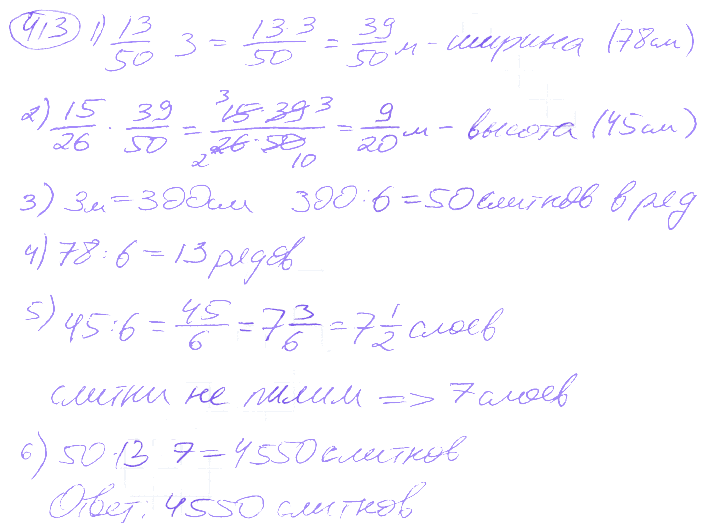 413 1) 13/50 · 3 = 13·3/50 = 39/50 м - ширина (78 см)
2) 15/26 · 39/50 = 15·39/26·50 = 9/20 м - высота (45 см)
3) 3м = 300см 300:6 = 50 слитков в ряд
4) 78:6 = 13 рядов
5) 45:6 = 45/6 = 7 3/6 = 7 1/2 слоев
слитки не пилим => 7 слоев
6) 50·13 7 = 4550 слитков
Ответ: 4550 слитков